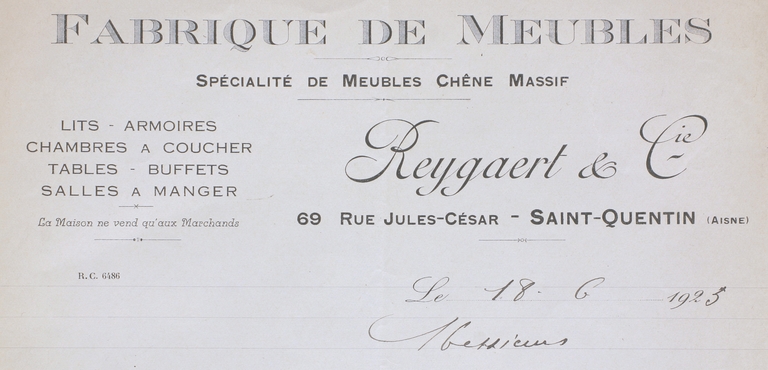 FABRIQUE DE MEUBLES
SPÉCIALITÉ DE MEUBLES CHÊNE MASSIF
LITS - ARMOIRES
CHAMBRES A COUCHER
TABLES - BUFFETS
SALLES A MANGER
La Maison ne vend qu'aux Marchands
R. C. 6486
Reygaert & Cie
69 RUE JULES-CÉSAR - SAINT-QUENTIN (AISNE)
Le 18. 6 1923
Messieurs